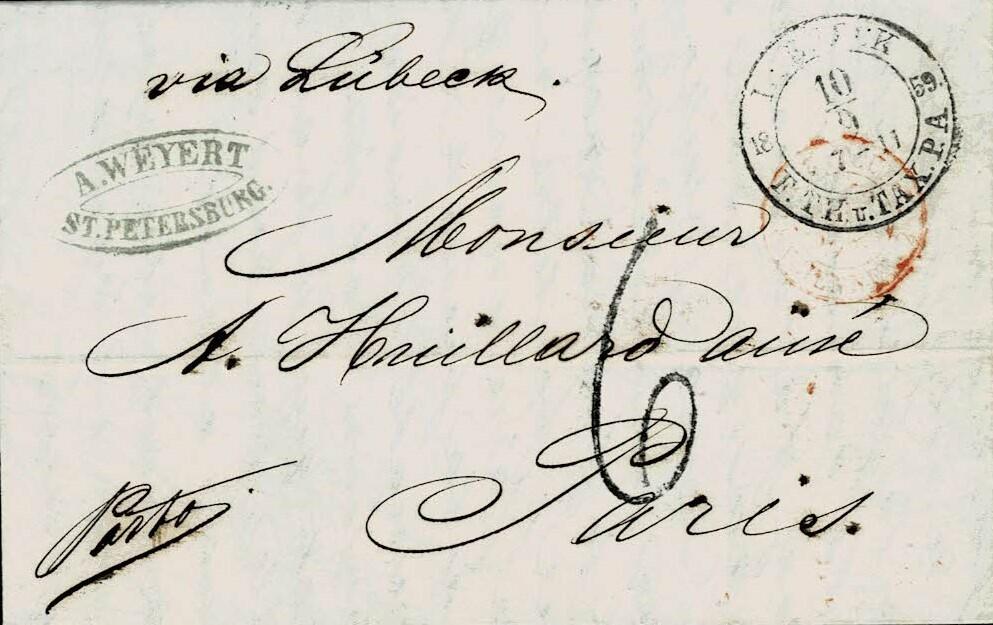 via Lübeck.
A. WEYERT
ST. PETERSBURG.
LUEBECK
10
18 59
7 11
F. TH. u. TAX. P. A.
Monsieur
A. Huillard ainé
Paris.
6
Porto